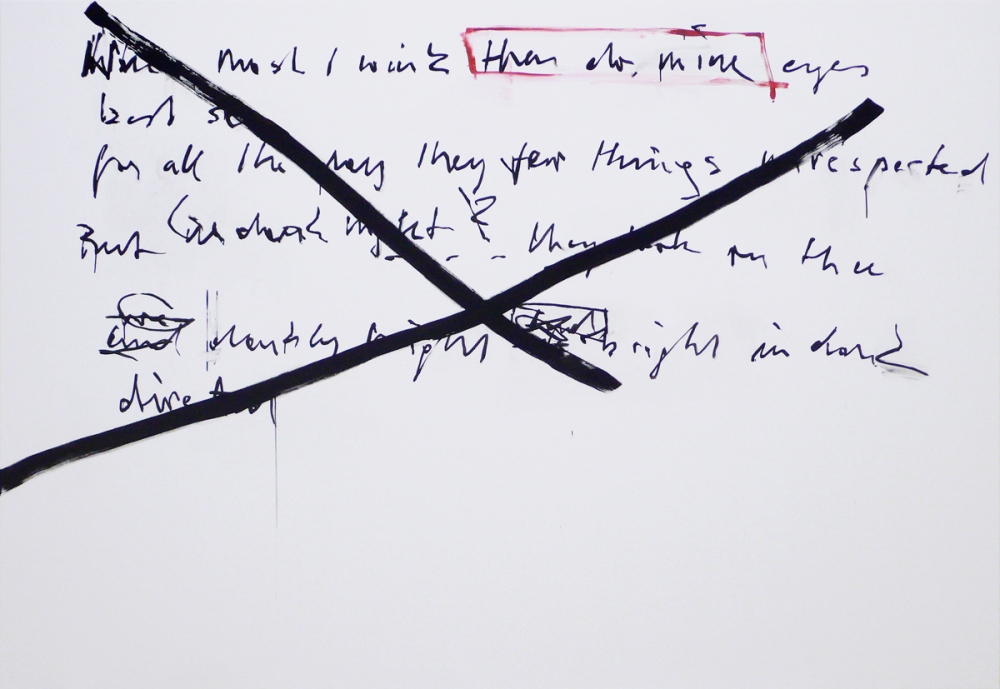 When most I wink then do mine eyes
best se
for all the day they few things unrespected
But (in dark night ? they look on thee
and darkly bright bright in dark
directed